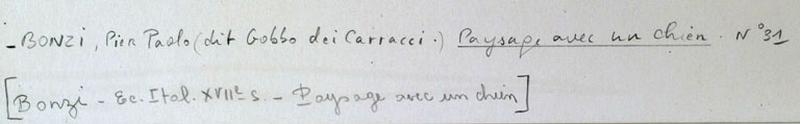 - BONZI, Pier Paolo (dit Gobbo dei Carracci.) Paysage avec un chien. N°31
[Bonzi - Ec. Ital. XVIIe s. - Paysage avec un chien]